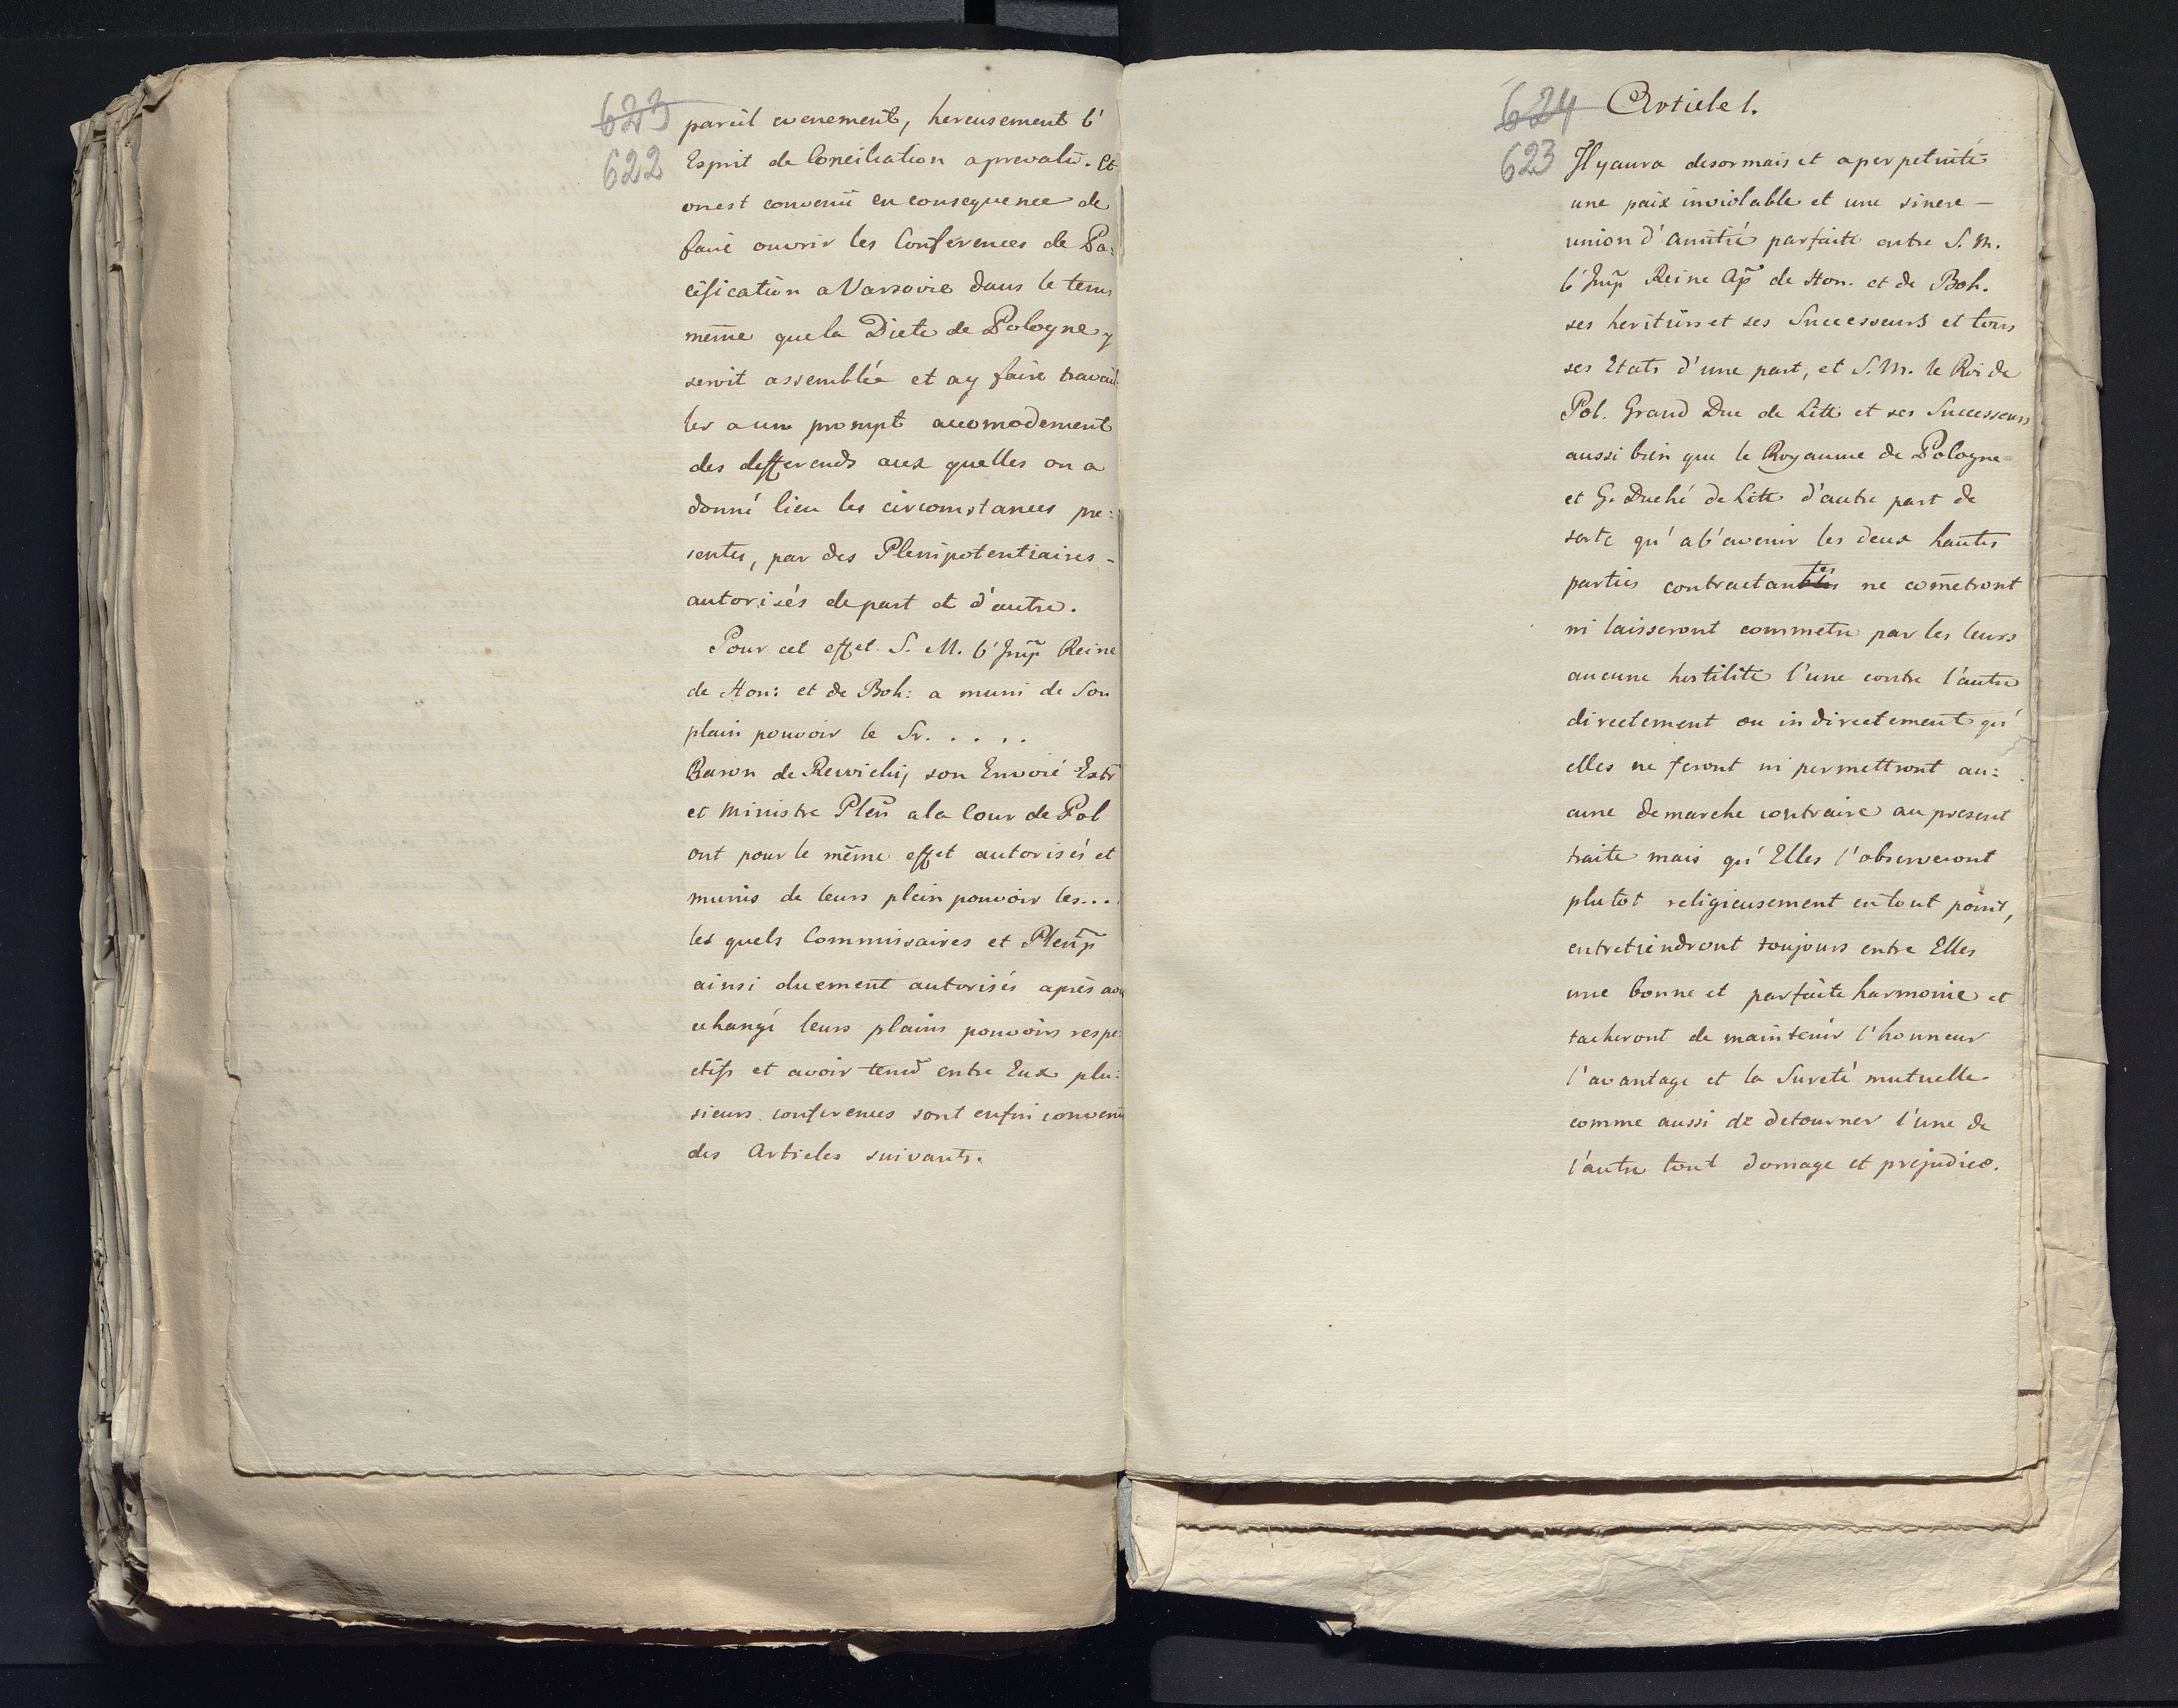 623
622
pareil evenement, hereusement l'
Esprit de Conciliation a prevalû. Et
on est convenû en consequence de
faire ouvrir les Conferences de Pa:
cification a Varsovie dans le tems
même que la Diete de Pologne y
seroit assemblée et a y faire travail
ler a un prompt accomodement
des differends aux quelles on a
donné lieu les circomstances pre:
sentes, par des Plenipotentiaires -
autorisés de part et d'autre.
Pour cet effet. S. M. l'Imp Reine
de Hon: et de Boh: a muni de Son
plain pouvoir le Sr. . . . .
Baron de Rewicki, son Envoié Extr
et Ministre Plen a la Cour de Pol
ont pour le même effet autorisés et
munis de leurs plein pouvoir les...
les quels Commissaires et Plenip
ainsi duement autorisés après avoi
echangé leurs plains pouvoirs respe:
ctifs et avoir tenû entre Eux plu:
sieurs conferences sont enfin convenu
des Articles suivants.
624
623
Article 1.
Il y aura desormais et a perpetuité
une paix inviolable et une sincre -
union d'amitié parfaite entre S. M.
l'Imp Reine Ap de Hon. et de Boh.
ses heritiers et ses Successeurs et tous
ses Etats d'une part, et S. M. le Roi de
Pol. Grand Duc de Litt et ses Successeurs
aussi bien que le Royaume de Pologne
et G. Duché de Litt d'autre part de
sorte qu'a l'avenir les deux hautes
parties contractantes ne cometront
ni laisseront commetre par les leurs
aucune hostilite l'une contre l'autre
directement ou indirectement qu'
elles ne feront ni permettront au:
cune demarche contraire au present
traite mais qu'Elles l'observeront
plutot religieusement en tout point,
entretiendront toujours entre Elles
une bonne et parfaite harmonie et
tacheront de maintenir l'honneur
l'avantage et la Sureté mutuelle
comme aussi de detourner l'une de
l'autre tout domage et prejudice.